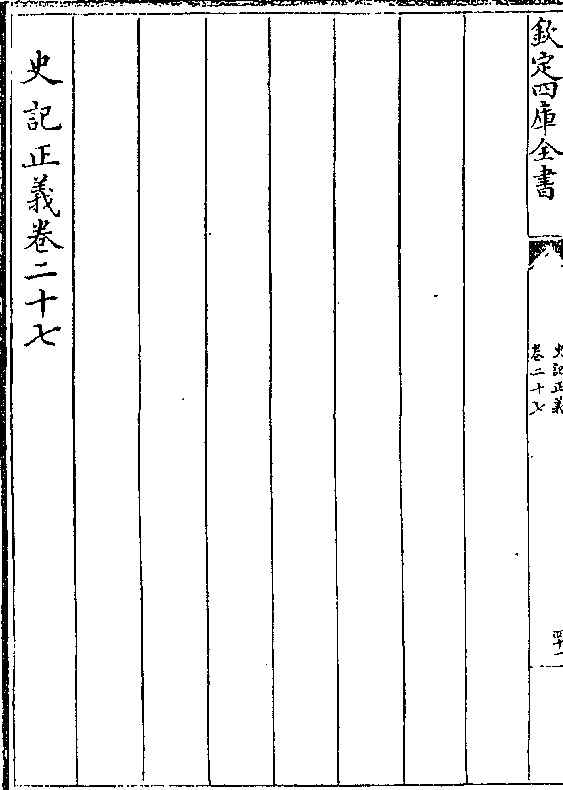 欽定四庫全書
史記正義
卷二十七
史記正義卷二十七